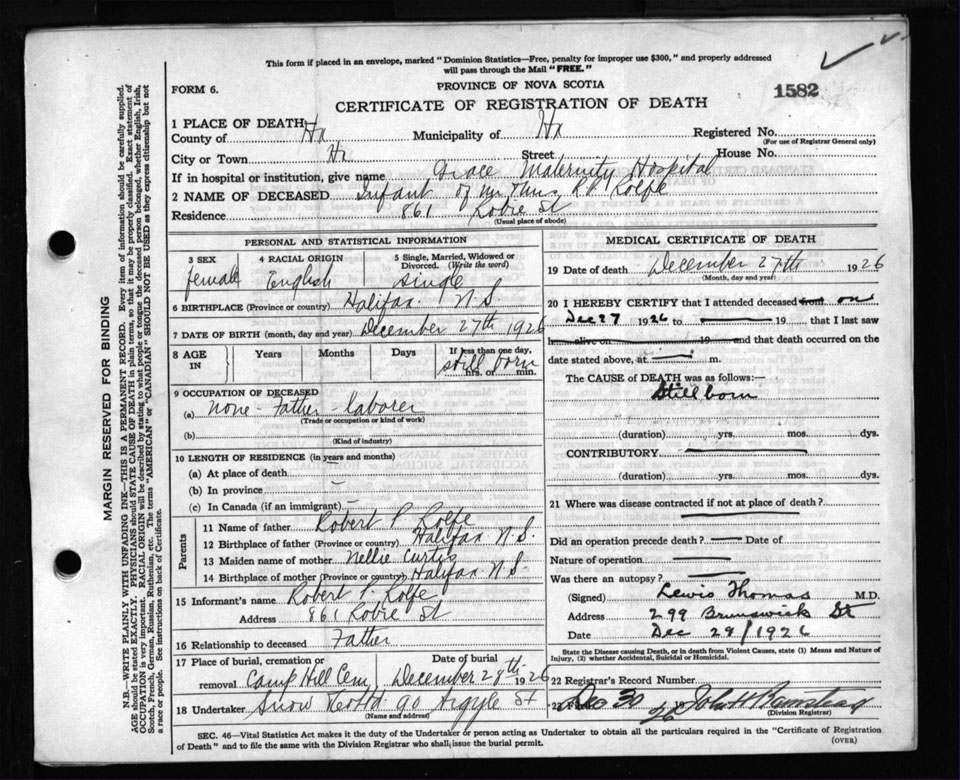 This form if placed in an envelope, marked "Dominion Statistics—Free, penalty for improper use $300," and properly addressed
will pass through the Mail "FREE."
FORM 6.
PROVINCE OF NOVA SCOTIA
1582
CERTIFICATE OF REGISTRATION OF DEATH
1 PLACE OF DEATH
County of Hx Municipality of Hx Registered No.
(For use of Registrar General only)
City or Town Hx Street House No.
If in hospital or institution, give name Grace Maternity Hospital
2 NAME OF DECEASED Infant of Mr & Mrs R P Rolfe
Residence 861 Robie St
(Usual place of abode)
PERSONAL AND STATISTICAL INFORMATION
3 SEX 4 RACIAL ORIGIN 5 Single, Married, Widowed or
Divorced. (Write the word)
female English Single
6 BIRTHPLACE (Province or country) Halifax N S
7 DATE OF BIRTH (month, day and year) December 27th 1926
8 AGE IN Years Months Days If less than one day,
still born
hrs. or min.
9 OCCUPATION OF DECEASED
(a) none - Father - laborer
(Trade or occupation or kind of work)
(b)
(Kind of industry)
10 LENGTH OF RESIDENCE (in years and months)
(a) At place of death
(b) In province
(c) In Canada (if an immigrant)
Parents
11 Name of father Robert P Rolfe
12 Birthplace of father (Province or country) Halifax N.S.
13 Maiden name of mother Nellie Curtis
14 Birthplace of mother (Province or country) Halifax N.S
15 Informant's name Robert P. Rolfe
Address 861 Robie St
16 Relationship to deceased Father
17 Place of burial, cremation or Date of burial
removal Camp Hill Cem December 28th 1926
18 Undertaker Snow & Co Ltd 90 Argyle St
(Name and address)
MEDICAL CERTIFICATE OF DEATH
19 Date of death December 27th 1926
(Month, day and year)
20 I HEREBY CERTIFY that I attended deceased from on
Dec 27 1926 to 19 that I last saw
h alive on 19 and that death occurred on the
date stated above, at m.
The CAUSE of DEATH was as follows:—
Stillborn
(duration) yrs. mos. dys.
CONTRIBUTORY
(duration) yrs. mos. dys.
21 Where was disease contracted if not at place of death?
Did an operation precede death? Date of
Nature of operation
Was there an autopsy?
(Signed) Lewis Thomas M.D.
Address 299 Brunswick St
Date Dec 28/1926
State the Disease causing Death, or in death from Violent Causes, state (1) Means and Nature of
Injury, (2) whether Accidental, Suicidal or Homicidal.
22 Registrar's Record Number
23 Dec 30 19 26 John H
(Division Registrar)
SEC. 46—Vital Statistics Act makes it the duty of the Undertaker or person acting as Undertaker to obtain all the particulars required in the "Certificate of Registration
of Death" and to file the same with the Division Registrar who shall issue the burial permit.
(OVER)
MARGIN RESERVED FOR BINDING
N.B.—WRITE PLAINLY WITH UNFADING INK—THIS IS A PERMANENT RECORD. Every item of information should be carefully supplied.
AGE should be stated EXACTLY. PHYSICIANS should STATE CAUSE OF DEATH in plain terms, so that it may be properly classified. Exact statement of
OCCUPATION is very important. RACIAL ORIGIN will be described by stating to what people or tongue the deceased person belonged, whether English, Irish,
Scotch, French, German, Russian, Ruthenian, etc. The terms "AMERICAN" or "CANADIAN" SHOULD NOT BE USED as they express citizenship but not
a race or people. See instructions on back of Certificate.